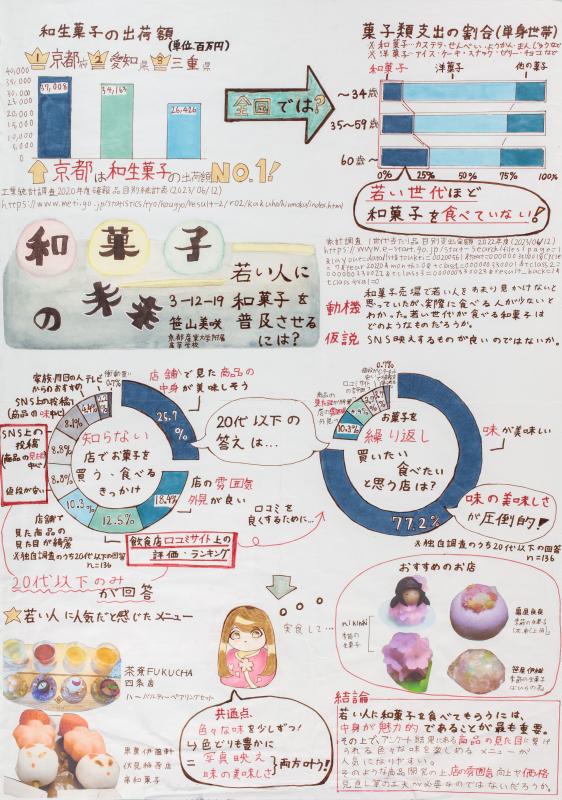 和生菓子の出荷額
(単位.百万円)
1 京都府 2 愛知県 3 三重県
40,000
35,000
30,000
25,000
20,000
15,000
10,000
5,000
0
37,008
34,163
26,426
京都は和生菓子の出荷額NO.1!
工業統計調査2020年度確報品目別統計表(2023/06/12)
全国では?
菓子類支出の割合(単身世帯)
※和菓子…カステラ・せんべい・ようかん・まんじゅうなど
※洋菓子…アイス・ケーキ・スナック・ゼリー・チョコなど
和菓子
洋菓子
他の菓子
〜34歳
35〜59歳
60歳〜
0%
25%
50%
75%
100%
若い世代ほど
和菓子を食べていない!
和菓子
の未来
若い人に
和菓子を
普及させる
には?
3-12-19
笹山美咲
京都産業大学附属
高等学校
動機
和菓子売場で若い人をあまり見かけないと
思っていたが、実際に食べる人が少ないと
わかった。若い世代が食べる和菓子は
どのようなものだろうか。
仮説
SNS映えするものが良いのではないか。
知らない
店でお菓子を
買う・食べる
きっかけ
店舗で見た商品の
中身が美味しそう
25.7%
店の雰囲気
外見が良い
18.4%
飲食店口コミサイト上の
評価・ランキング
12.5%
店舗で
見た商品の
見た目が綺麗
10.3%
値段が安い
8.8%
SNS上の
投稿
(商品の見た目
中心)
8.8%
SNS上の投稿
(商品の味中心)
8.1%
家族・周囲の人
からのおすすめ
テレビ
衝動買い
0.7%
※独自調査のうち20代以下の回答
n=136
20代以下の
答えは…
口コミを
良くするために…
お菓子を
繰り返し
買いたい
食べたい
と思う店は?
味が美味しい
77.2%
10.3%
0.7%
味の美味しさ
が圧倒的!
※独自調査のうち20代以下の回答
n=136
20代以下のみ
が回答
若い人に人気だと感じたメニュー
茶葉FUKUCHA
四条店
ハーバルティーペアリングセット
伏見稲荷店
実食して…
おすすめのお店
nikiniki
季節の
生菓子
季節の生菓子
笹屋伊織
季節の生菓子
共通点、
色々な味を少しずつ!
色どりも豊かに
写真映え
味の美味しさ
両方叶う!
結論
若い人に和菓子を食べてもらうには、
中身が魅力的であることが最も重要。
その上で、アンケート結果にある商品の見た目に惹け
られる色々な味を楽しめるメニューが
人気になりやすい。
そのような商品開発の上、店の雰囲気向上や価格
見直し等の工夫が必要なのではないだろうか。